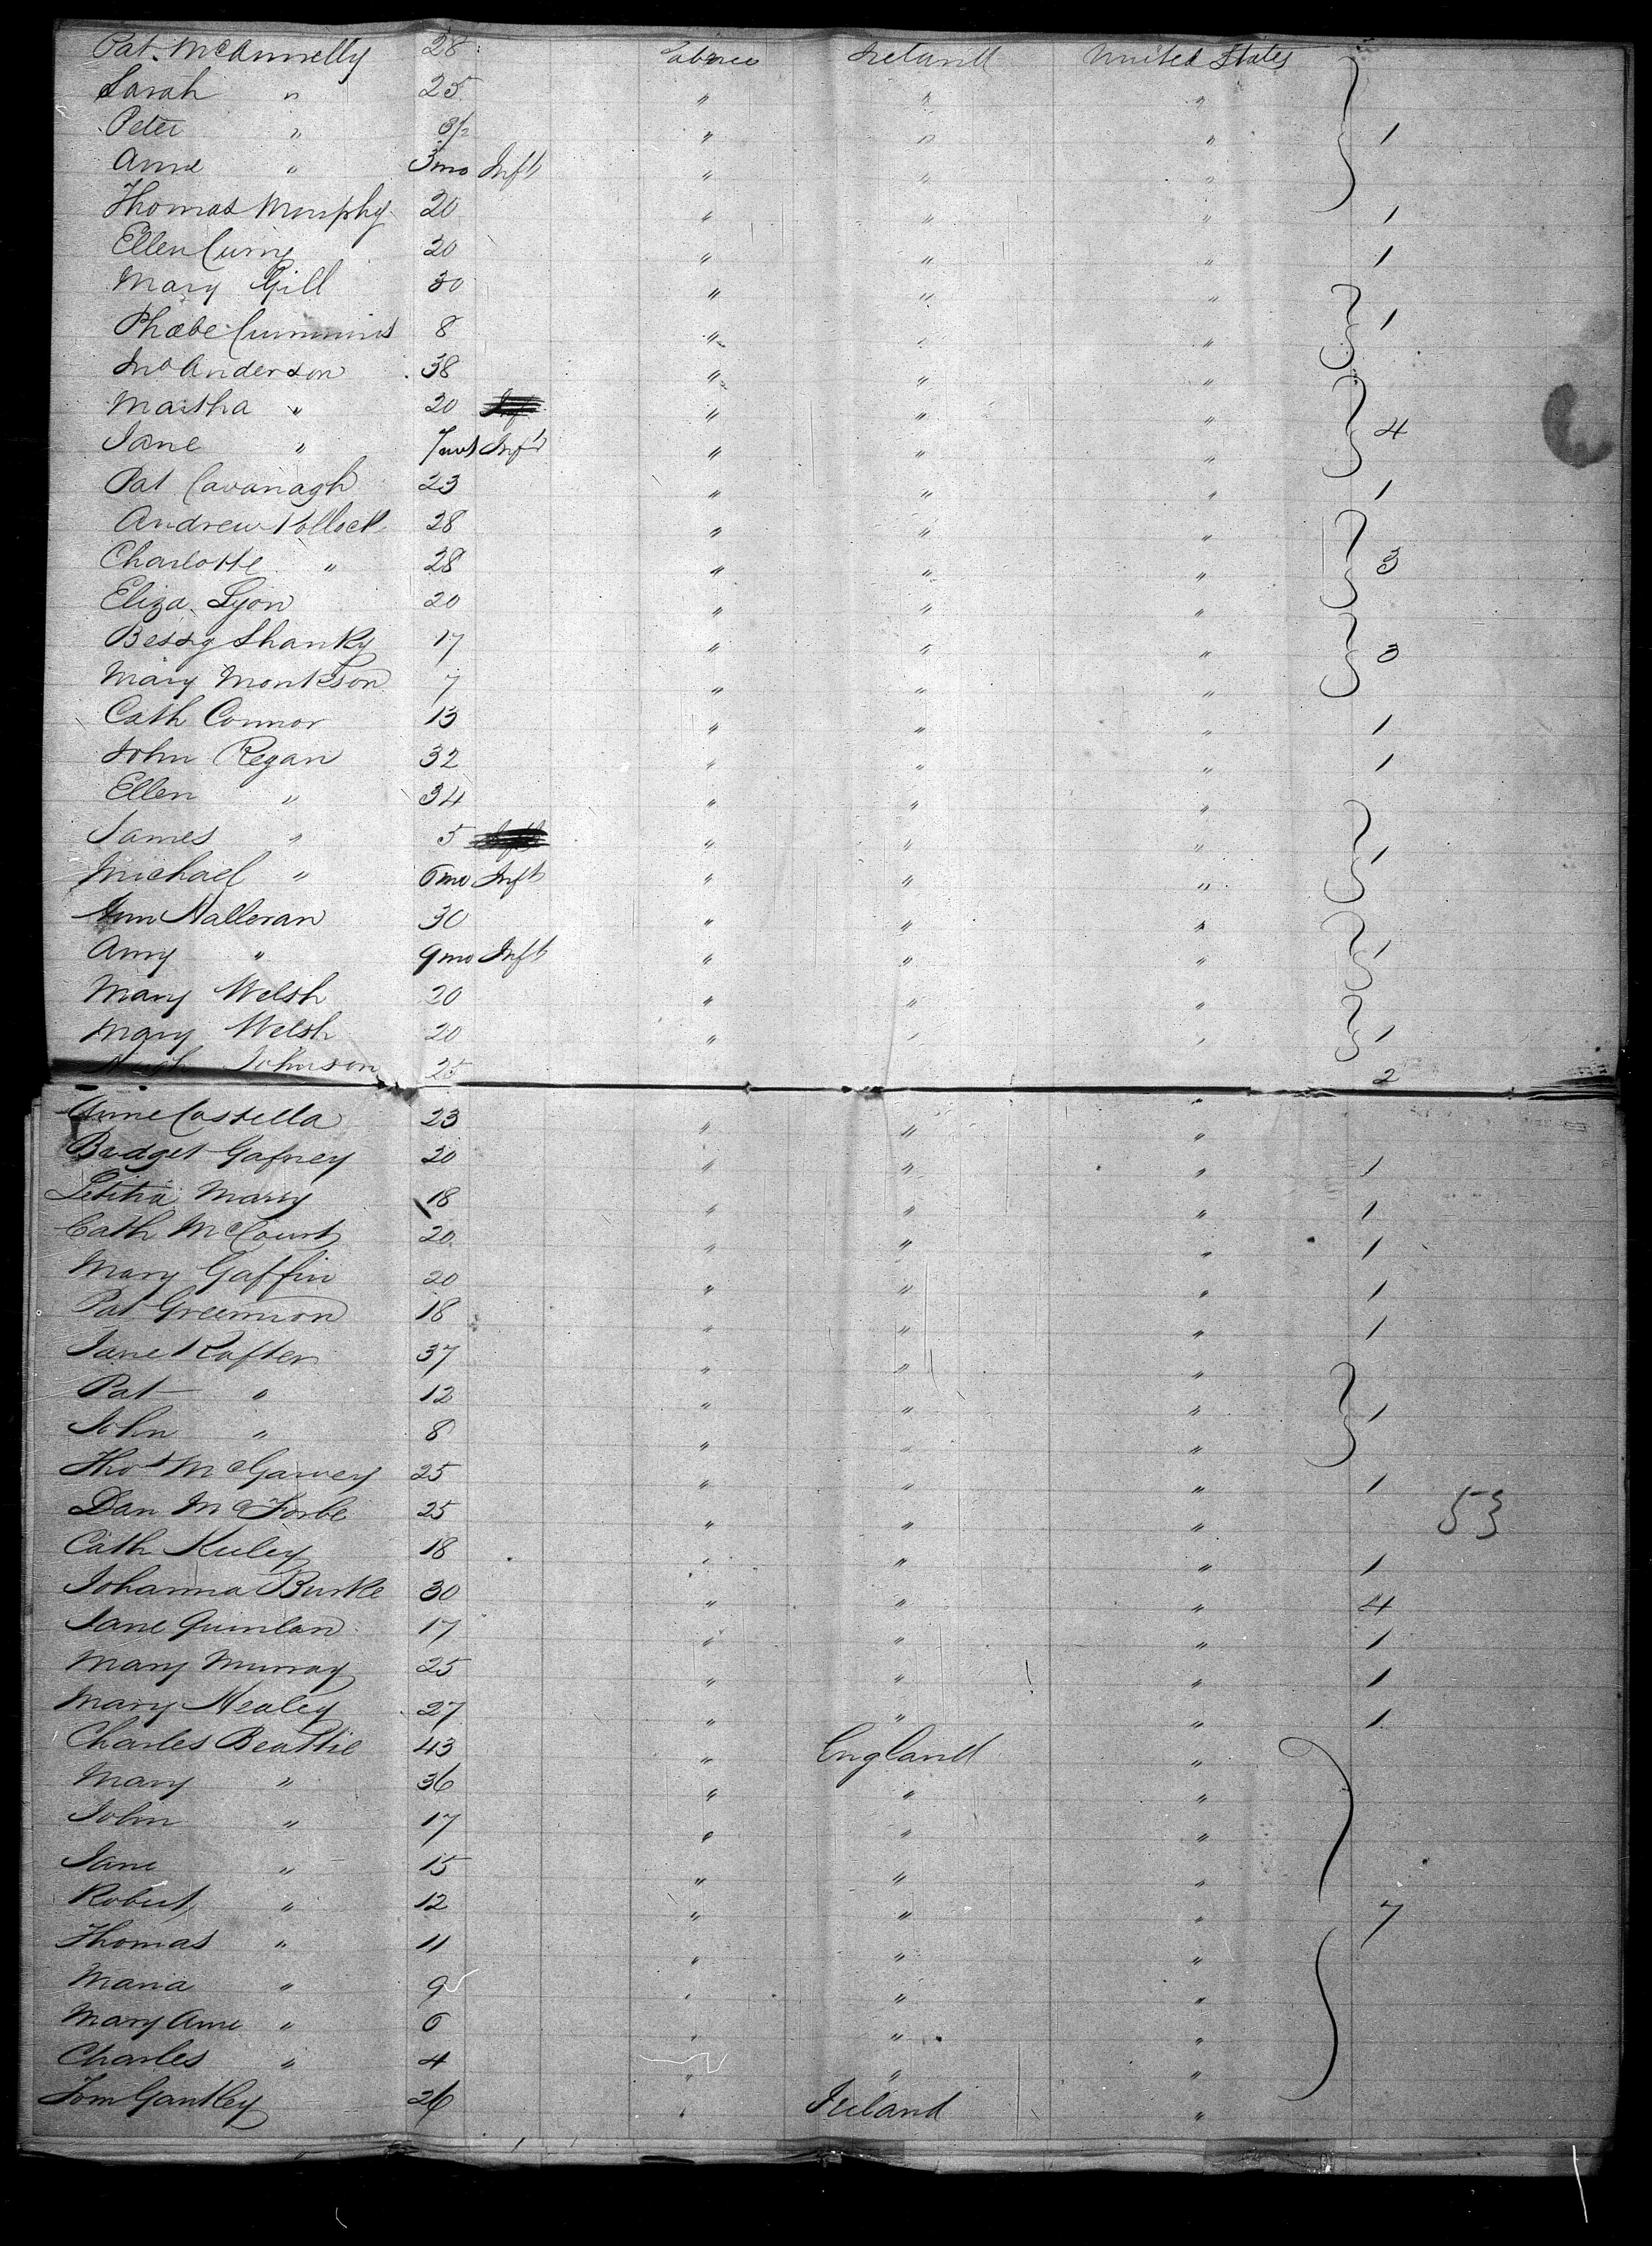 Pat McAnnelly 28 Labrer Ireland United States
Sarah " 25 " " "
Peter " 3/2 " " " 1
Anne " 3mo Inft " " "
Thomas Murphy 20 " " " 1
Ellen Curry 20 " " " 1
Mary Gill 30 " " "
Phœbe Cummins 8 " " " 1
Jno Anderson 38 " " "
Martha " 20 " " "
Jane " 7mos Inft " " " 4
Pat Cavanagh 23 " " " 1
Andrew Pollock 28 " " "
Charlotte " 28 " " " 3
Eliza Lyon 20 " " "
Bessy Shanky 17 " " " 3
Mary Monkson 7 " " "
Cath Connor 13 " " " 1
John Regan 32 " " " 1
Ellen " 34 " " "
James " 5 " " " 1
Michael " 6mo Inft " " "
Ann Halleran 30 " " "
Amy " 9mo Inft " " " 1
Mary Welsh 20 " " "
Mary Welsh 20 " " " 1
Hugh Johnson 25 2
Anne Costella 23 " " "
Bridget Gafney 20 " " " 1
Letitia Marry 18 " " " 1
Cath McCourt 20 " " " 1
Mary Gaffin 20 " " " 1
Pat Greennon 18 " " " 1
Jane Rafter 37 " " "
Pat " 12 " " " 1
John " 8 " " "
Thos McGarvey 25 " " " 1
Dan McForbe 25 " " " 53
Cath Kuley 18 " " " 1
Johanna Burke 30 " " " 4
Jane Quinlan 17 " " " 1
Mary Murray 25 " " " 1
Mary Healey 27 " " " 1
Charles Beattie 43 " England "
Mary " 36 " " "
John " 17 " " "
Jane " 15 " " "
Robert " 12 " " " 7
Thomas " 11 " " "
Maria " 9 " " "
Mary Anne " 6 " " "
Charles " 4 " " "
Tom Gantley 26 " Ireland "